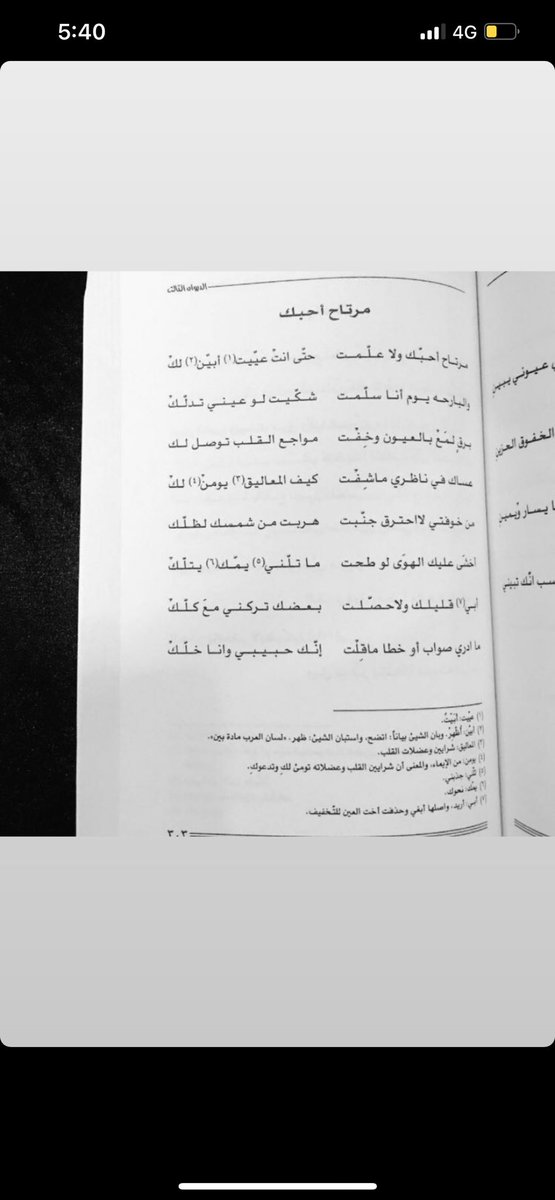 5:40
4G
الديوان الثالث
مرتاح أحبك
مرتاح أحبّك ولا علّمت حتّى انتْ عيّيت(١) أبيّن(٢) لكْ
والبارحه يوم أنا سلّمت شكّيت لو عيني تدلّكْ
برقٍ لمَعْ بالعيون وخِفْت مواجع القلب توصل لك
عساك في ناظري ماشِفْت كيف المعاليق(٣) يومنْ(٤) لكْ
من خوفتي لااحترق جنّبت هربت من شمسك لظلّك
أخشَى عليك الهوَى لو طحت ما تلّني(٥) يمّك(٦) يتلّكْ
أبي(٧) قليلك ولاحصّلت بعضك تركني معَ كلّكْ
ما ادري صواب أو خطا ماقِلْت إنّك حبيبي وانا خلّكْ
(١) عيّيت: أبَيْتُ.
(٢) أبيّن: أُظهِرُ. وبان الشيئ بياناً: اتضح، واستبان الشيئ: ظهر. «لسان العرب مادة بين».
(٣) المعاليق: شرايين وعضلات القلب.
(٤) يومن: من الإيماء، والمعنى أن شرايين القلب وعضلاته تومئ لكِ وتدعوكِ.
(٥) تلّني: جذبني.
(٦) يمّك: نحوك.
(٧) أبي: أريد، وأصلها أبغي وحذفت أخت العين للتّخفيف.
٣٠٣
عيوني يبهن
الخفوق الحزين
يا يسار ويَمين
سب انّك تبيني